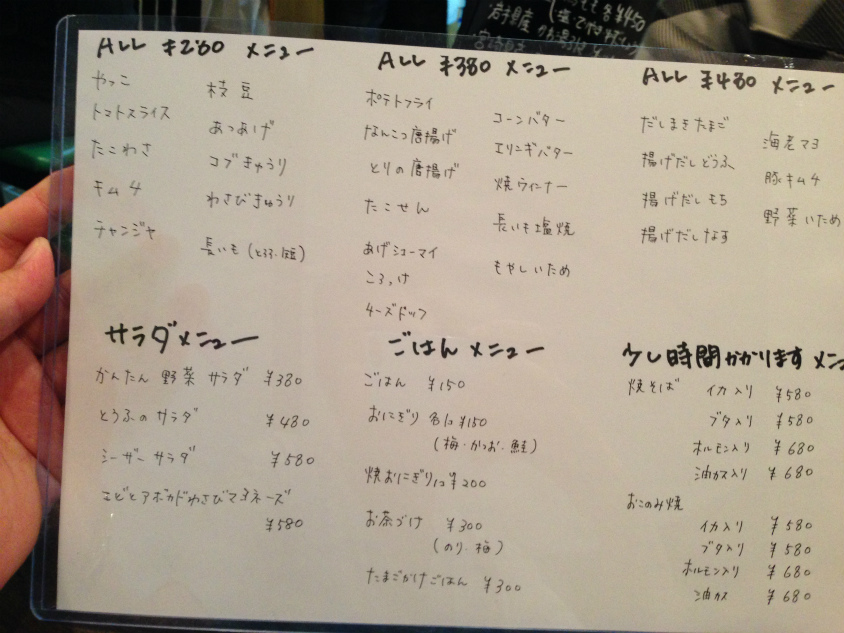 ALL ¥280 メニュー
やっこ
トマトスライス
たこわさ
キムチ
チャンジャ
枝豆
あつあげ
コブきゅうり
わさびきゅうり
長いも
ALL ¥380 メニュー
ポテトフライ
なんこつ唐揚げ
とりの唐揚げ
たこせん
あげシューマイ
ころっけ
チーズドッフ
コーンバター
エリンギバター
焼ウィンナー
長いも塩焼
もやしいため
ALL ¥480 メニュー
だしまきたまご
揚げだしどうふ
揚げだしもち
揚げだしなす
海老マヨ
豚キムチ
野菜いため
サラダメニュー
かんたん 野菜 サラダ ¥380
とうふのサラダ ¥480
シーザーサラダ ¥580
エビとアボカドわさびマヨネーズ
¥580
ごはん メニュー
ごはん ¥150
おにぎり 各1コ ¥150
(梅・かつお・鮭)
焼おにぎり1コ ¥200
お茶づけ ¥300
(のり・梅)
たまごかけごはん ¥300
少し時間かかります メニ
焼そば イカ入り ¥580
ブタ入り ¥580
ホルモン入り ¥680
油カス入り ¥680
おこのみ焼
イカ入り ¥580
ブタ入り ¥580
ホルモン入り ¥680
油カス ¥680